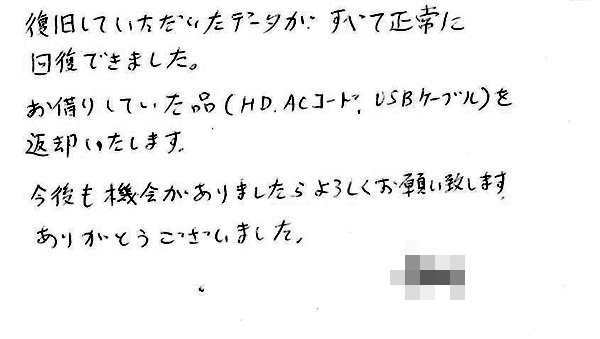 復旧していただいたデータが、すべて正常に
回復できました。
お借りしていた品(HD.ACコード、USBケーブル)を
返却いたします。
今後も機会がありましたらよろしくお願い致します
ありがとうございました。